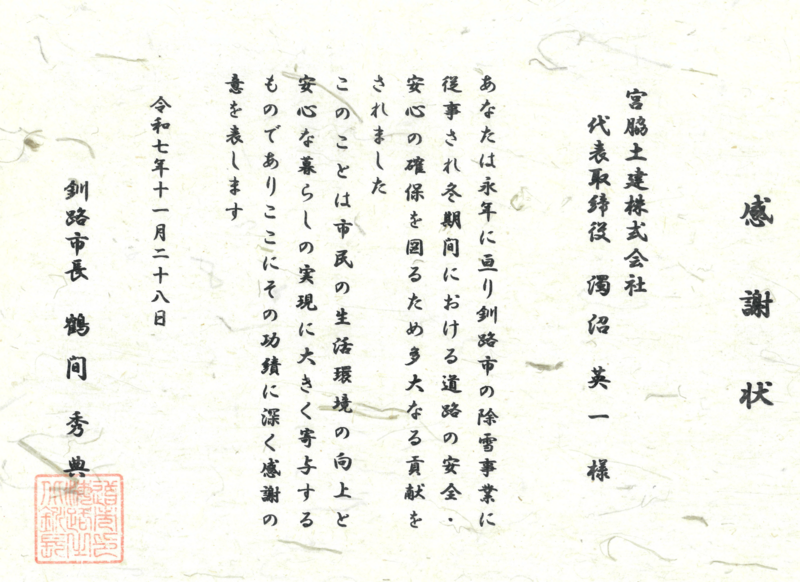 感謝状
宮脇土建株式会社
代表取締役 濁沼英一様
あなたは永年に亘り釧路市の除雪事業に
従事され冬期間における道路の安全・
安心の確保を図るため多大なる貢献を
されました
このことは市民の生活環境の向上と
安心な暮らしの実現に大きく寄与する
ものでありここにその功績に深く感謝の
意を表します
令和七年十一月二十八日
釧路市長 鶴間秀典